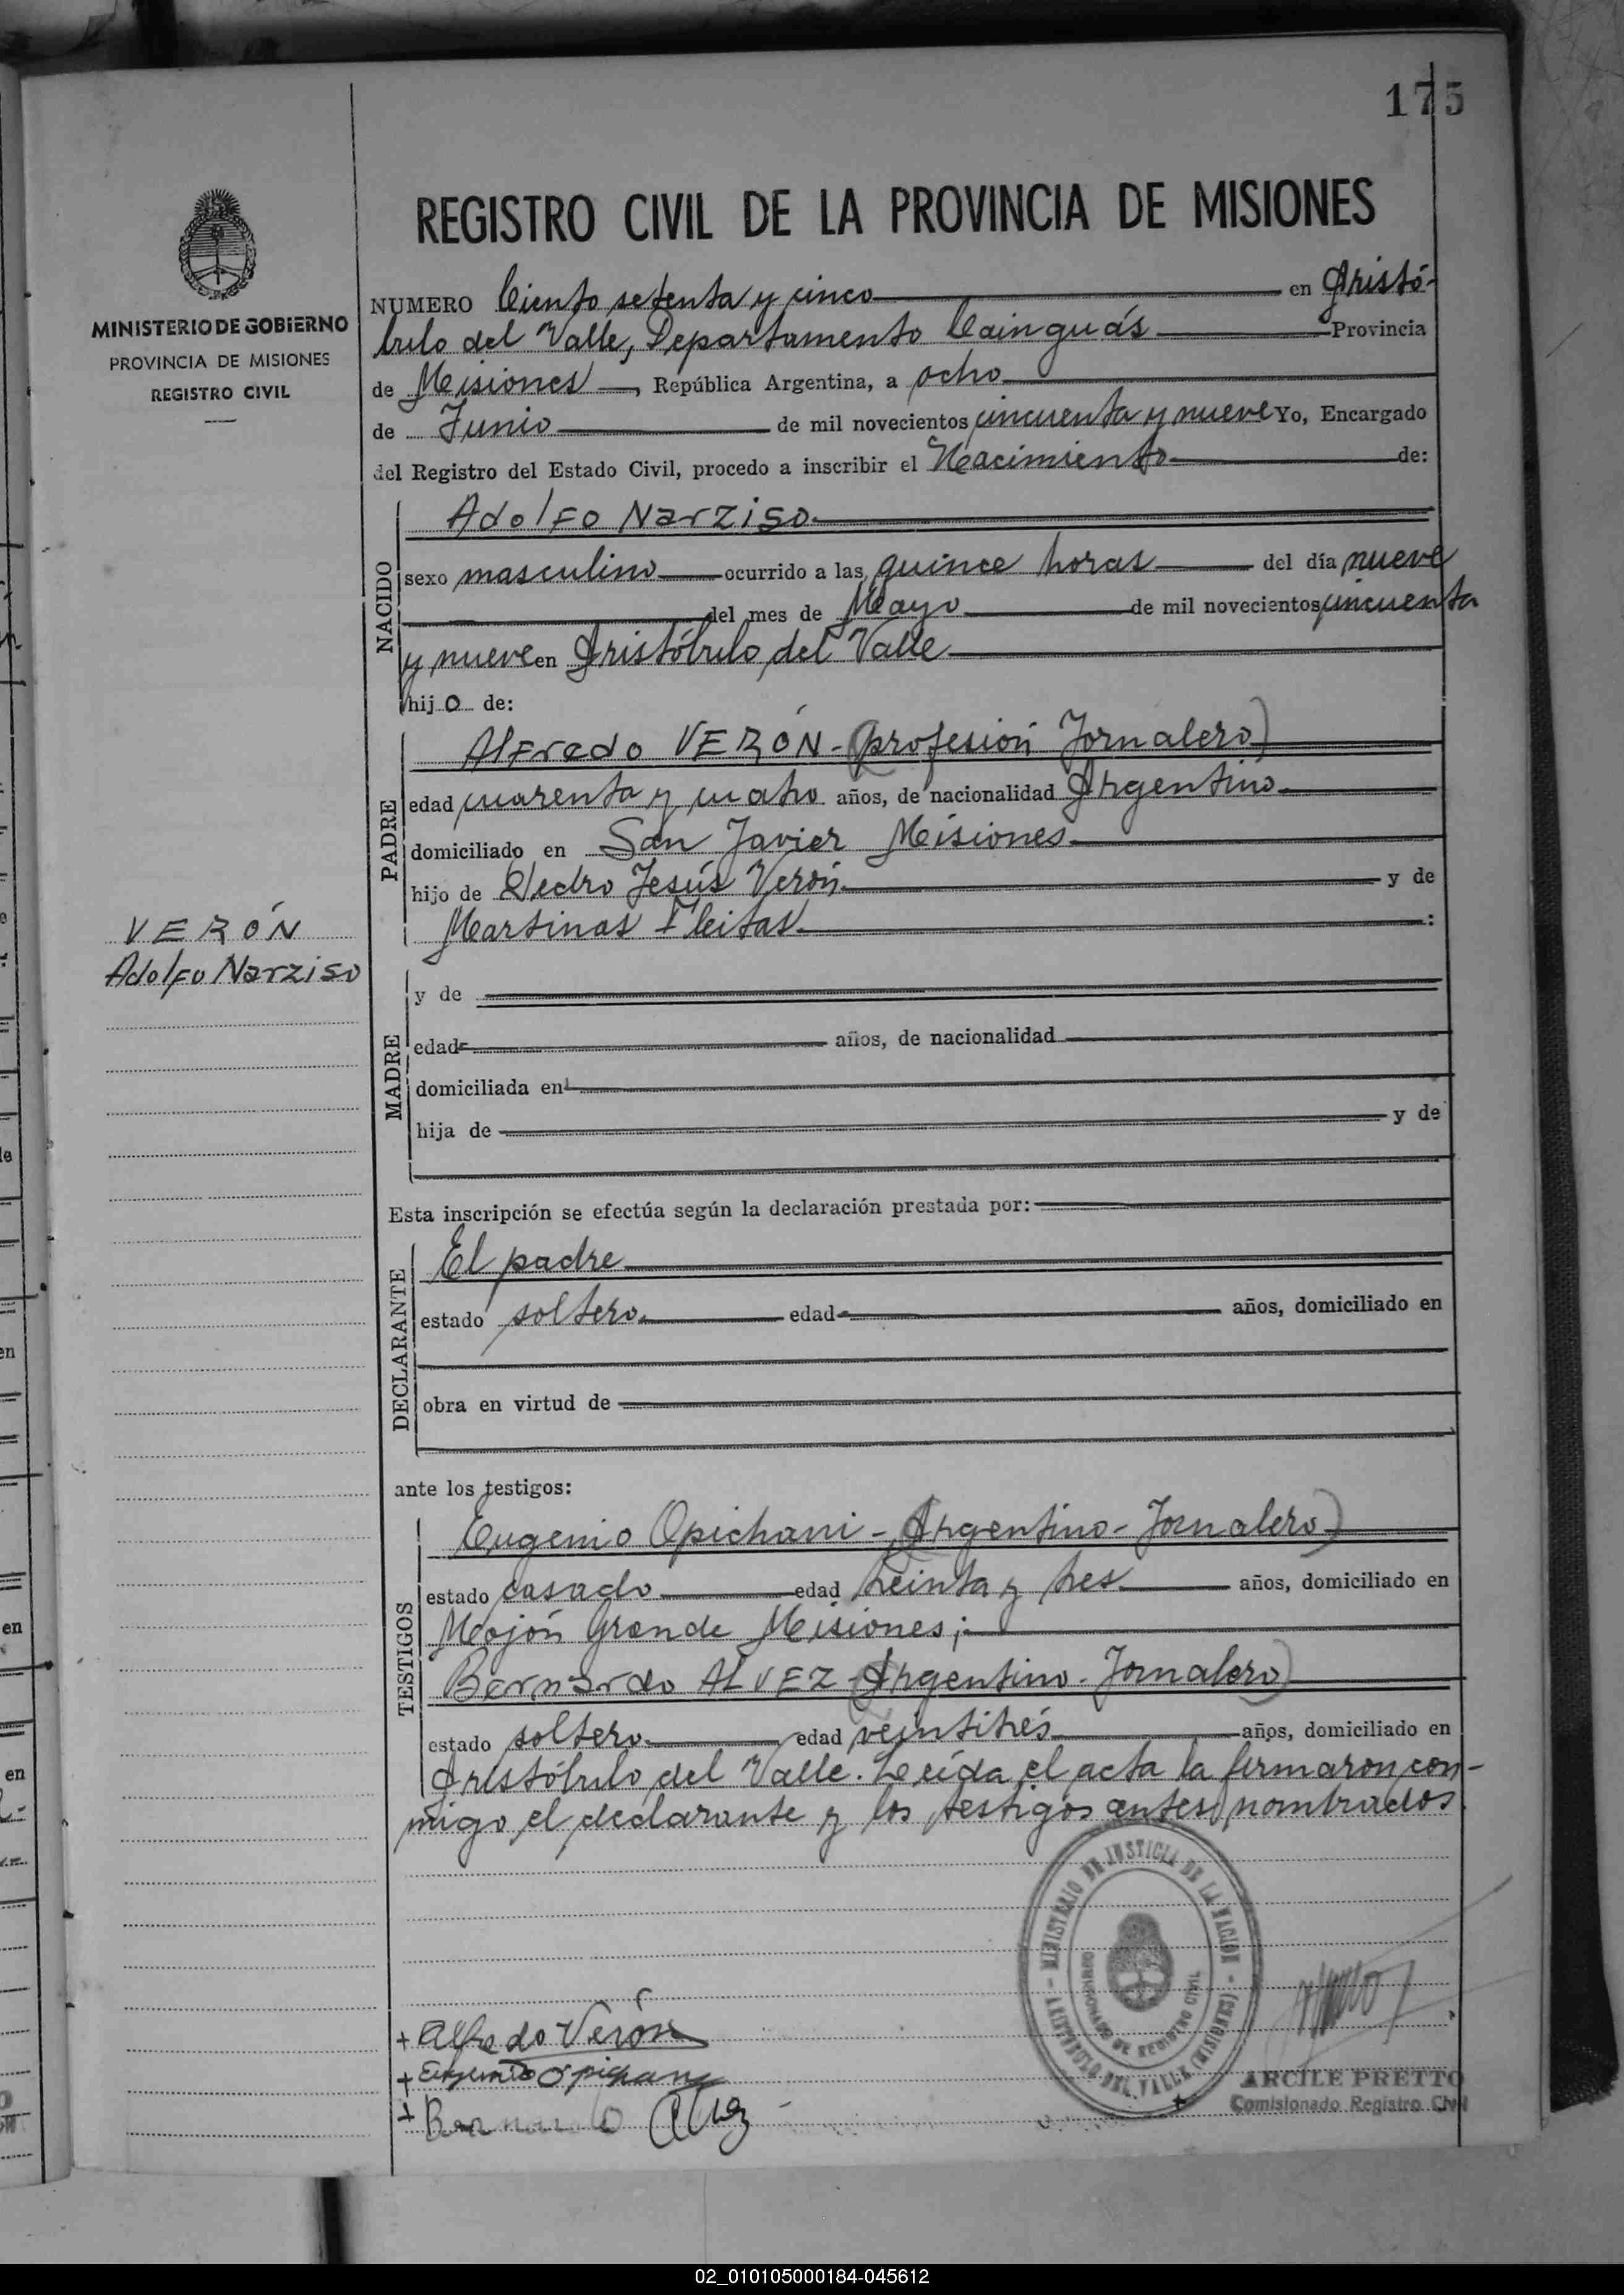 175
REGISTRO CIVIL DE LA PROVINCIA DE MISIONES
MINISTERIO DE GOBIERNO
PROVINCIA DE MISIONES
REGISTRO CIVIL
NUMERO Ciento setenta y cinco en Aristó-
bulo del Valle, Departamento Cainguás Provincia
de Misiones, República Argentina, a ocho
de Junio de mil novecientos cincuenta y nueve Yo, Encargado
del Registro del Estado Civil, procedo a inscribir el Nacimiento de:
NACIDO
Adolfo Narziso
sexo masculino ocurrido a las quince horas del día nueve
del mes de Mayo de mil novecientos cincuenta
y nueve en Aristóbulo del Valle
hijo de:
PADRE
Alfredo VERÓN - (profesión Jornalero)
edad cuarenta y cuatro años, de nacionalidad Argentino
domiciliado en San Javier Misiones
hijo de Pedro Jesús Verón y de
Martinas Fleitas :
VERÓN
Adolfo Narziso
MADRE
y de
edad años, de nacionalidad
domiciliada en
hija de y de
Esta inscripción se efectúa según la declaración prestada por:
DECLARANTE
El padre
estado soltero edad años, domiciliado en
obra en virtud de
ante los testigos:
TESTIGOS
Eugenio Opichani - (Argentino - Jornalero)
estado casado edad treinta y tres años, domiciliado en
Mojón Grande Misiones;
Bernardo ALVEZ (Argentino - Jornalero)
estado soltero edad veintitrés años, domiciliado en
Aristóbulo del Valle. Leída el acta la firmaron con-
migo el declarante y los testigos antes nombrados
MINISTERIO DE JUSTICIA DE LA NACION
ARISTOBULO DEL VALLE (MISIONES)
COMISIONADO DE REGISTRO CIVIL
+ Alfredo Verón
+ Eugenio Opichany
+ Bernardo Alvez
ARCILE PRETTO
Comisionado Registro Civil
02_010105000184-045612